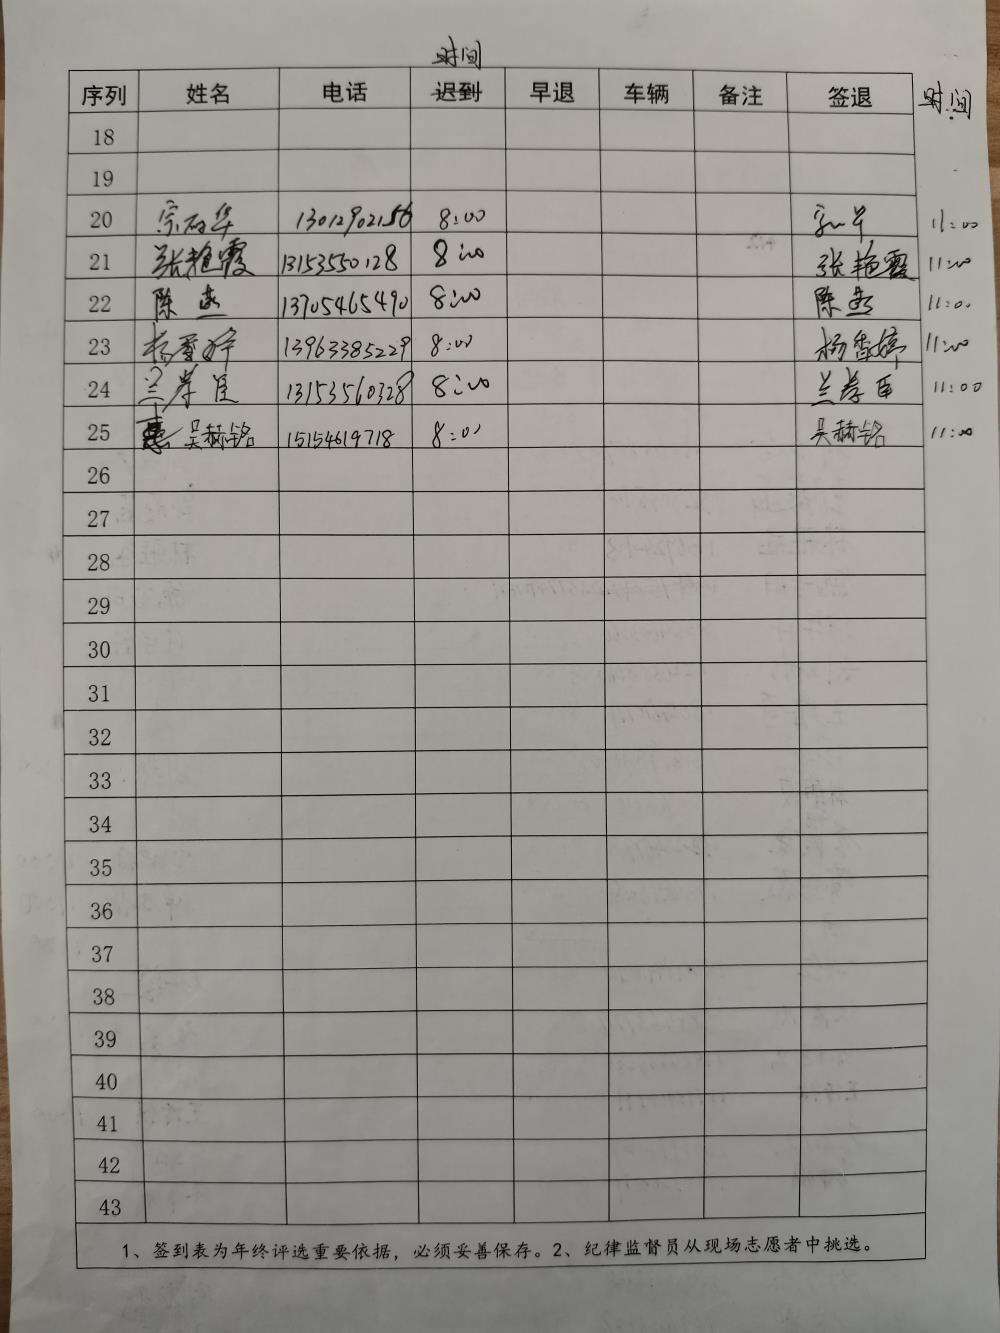 时间
序列 姓名 电话 迟到 早退 车辆 备注 签退 时间
18
19
20 宗 华 13012902156 8:00 11:00
21 张艳霞 13153550128 8:00 张艳霞 11:00
22 陈燕 13705465490 8:00 陈燕 11:00
23 杨香婷 13963385229 8:00 杨香婷 11:00
24 兰孝臣 13153560328 8:00 兰孝臣 11:00
25 吴赫铭 15154619718 8:00 吴赫铭 11:00
26
27
28
29
30
31
32
33
34
35
36
37
38
39
40
41
42
43
1、签到表为年终评选重要依据，必须妥善保存。2、纪律监督员从现场志愿者中挑选。